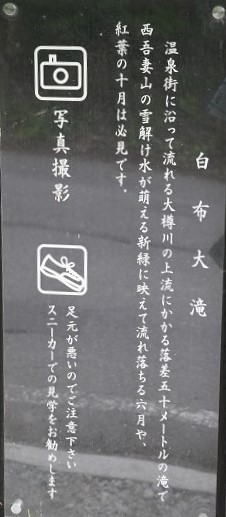 白布大滝
温泉街に沿って流れる大樽川の上流にかかる落差五十メートルの滝で
西吾妻山の雪解け水が萌える新緑に映えて流れ落ちる六月や、
紅葉の十月は必見です。
写真撮影
足元が悪いのでご注意下さい
スニーカーでの見学をお勧めします